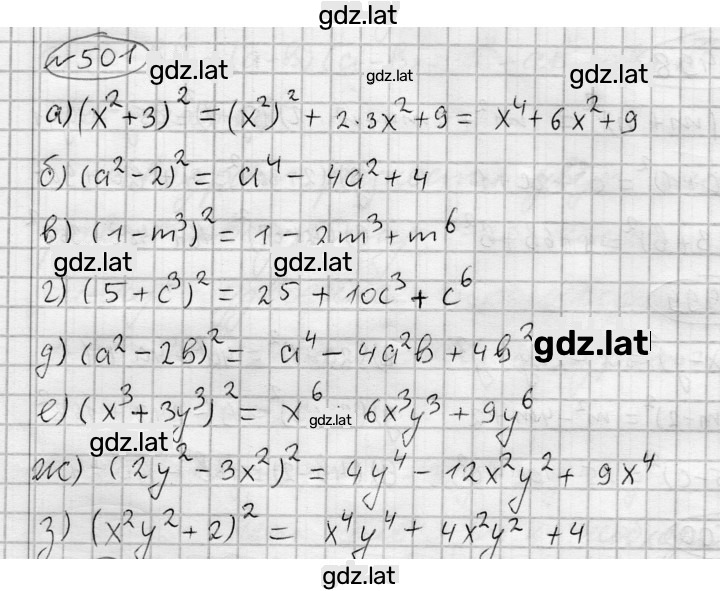 gdz.lat
№501
gdz.lat gdz.lat gdz.lat
а) (x² + 3)² = (x²)² + 2·3x² + 9 = x⁴ + 6x² + 9
б) (a² - 2)² = a⁴ - 4a² + 4
в) (1 - m³)² = 1 - 2m³ + m⁶
gdz.lat gdz.lat
г) (5 + c³)² = 25 + 10c³ + c⁶
д) (a² - 2b)² = a⁴ - 4a²b + 4b² gdz.lat
е) (x³ + 3y³)² = x⁶ 6x³y³ + 9y⁶
gdz.lat gdz.lat
ж) (2y² - 3x²)² = 4y⁴ - 12x²y² + 9x⁴
з) (x²y² + 2)² = x⁴y⁴ + 4x²y² + 4
gdz.lat